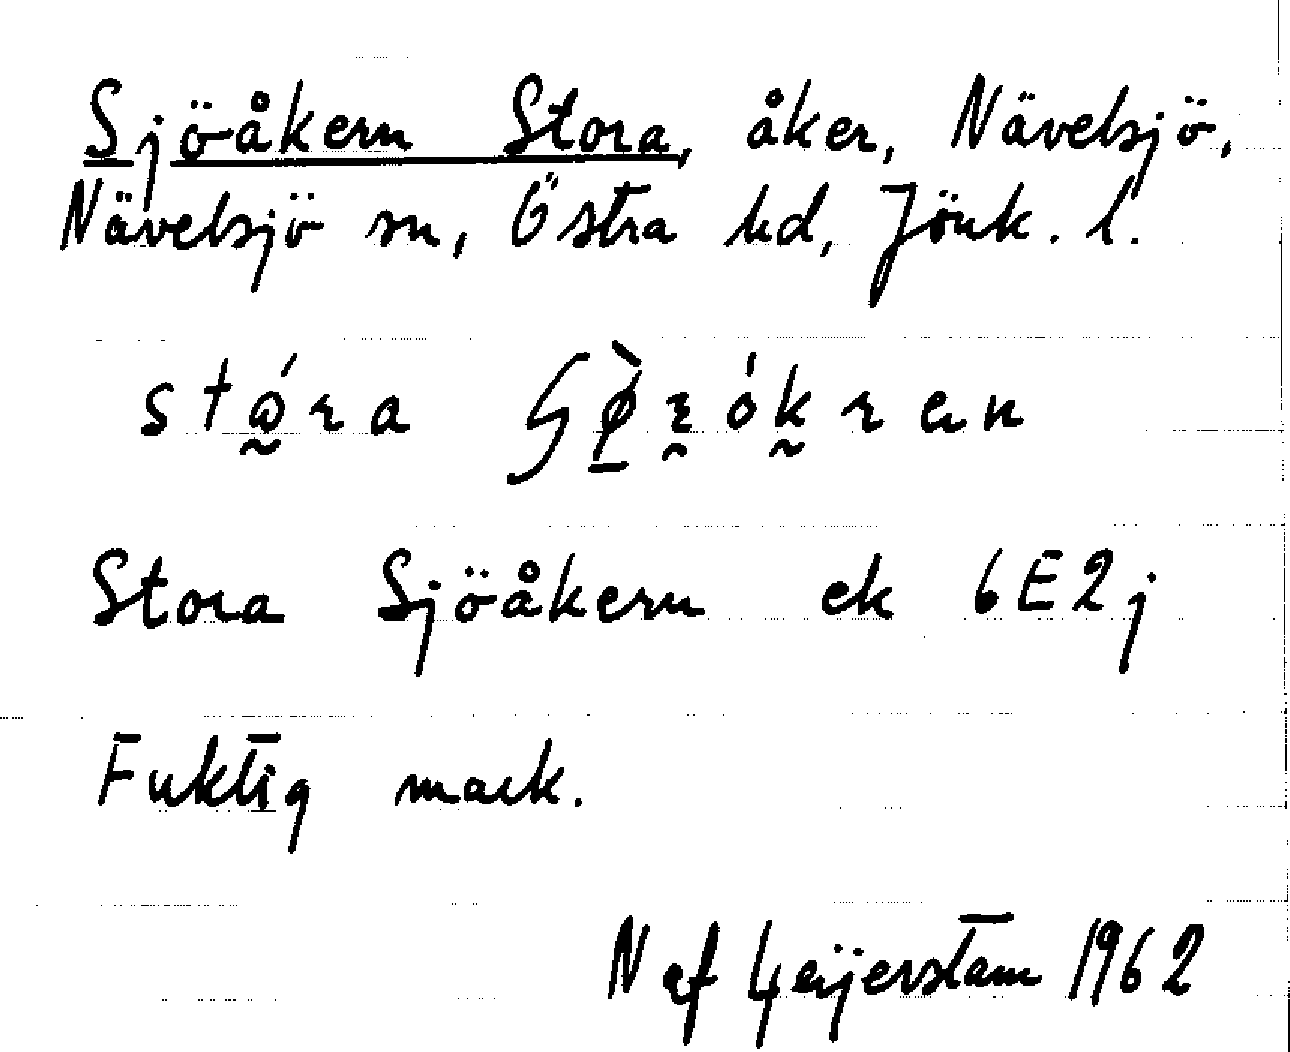 Sjöåkern Stora, åker, Nävelsjö,
Nävelsjö sn, Östra hd, Jönk. l.
Stora Sjöåkern ek 6E2j
Fuktig mark.
N af Geijerstam 1962